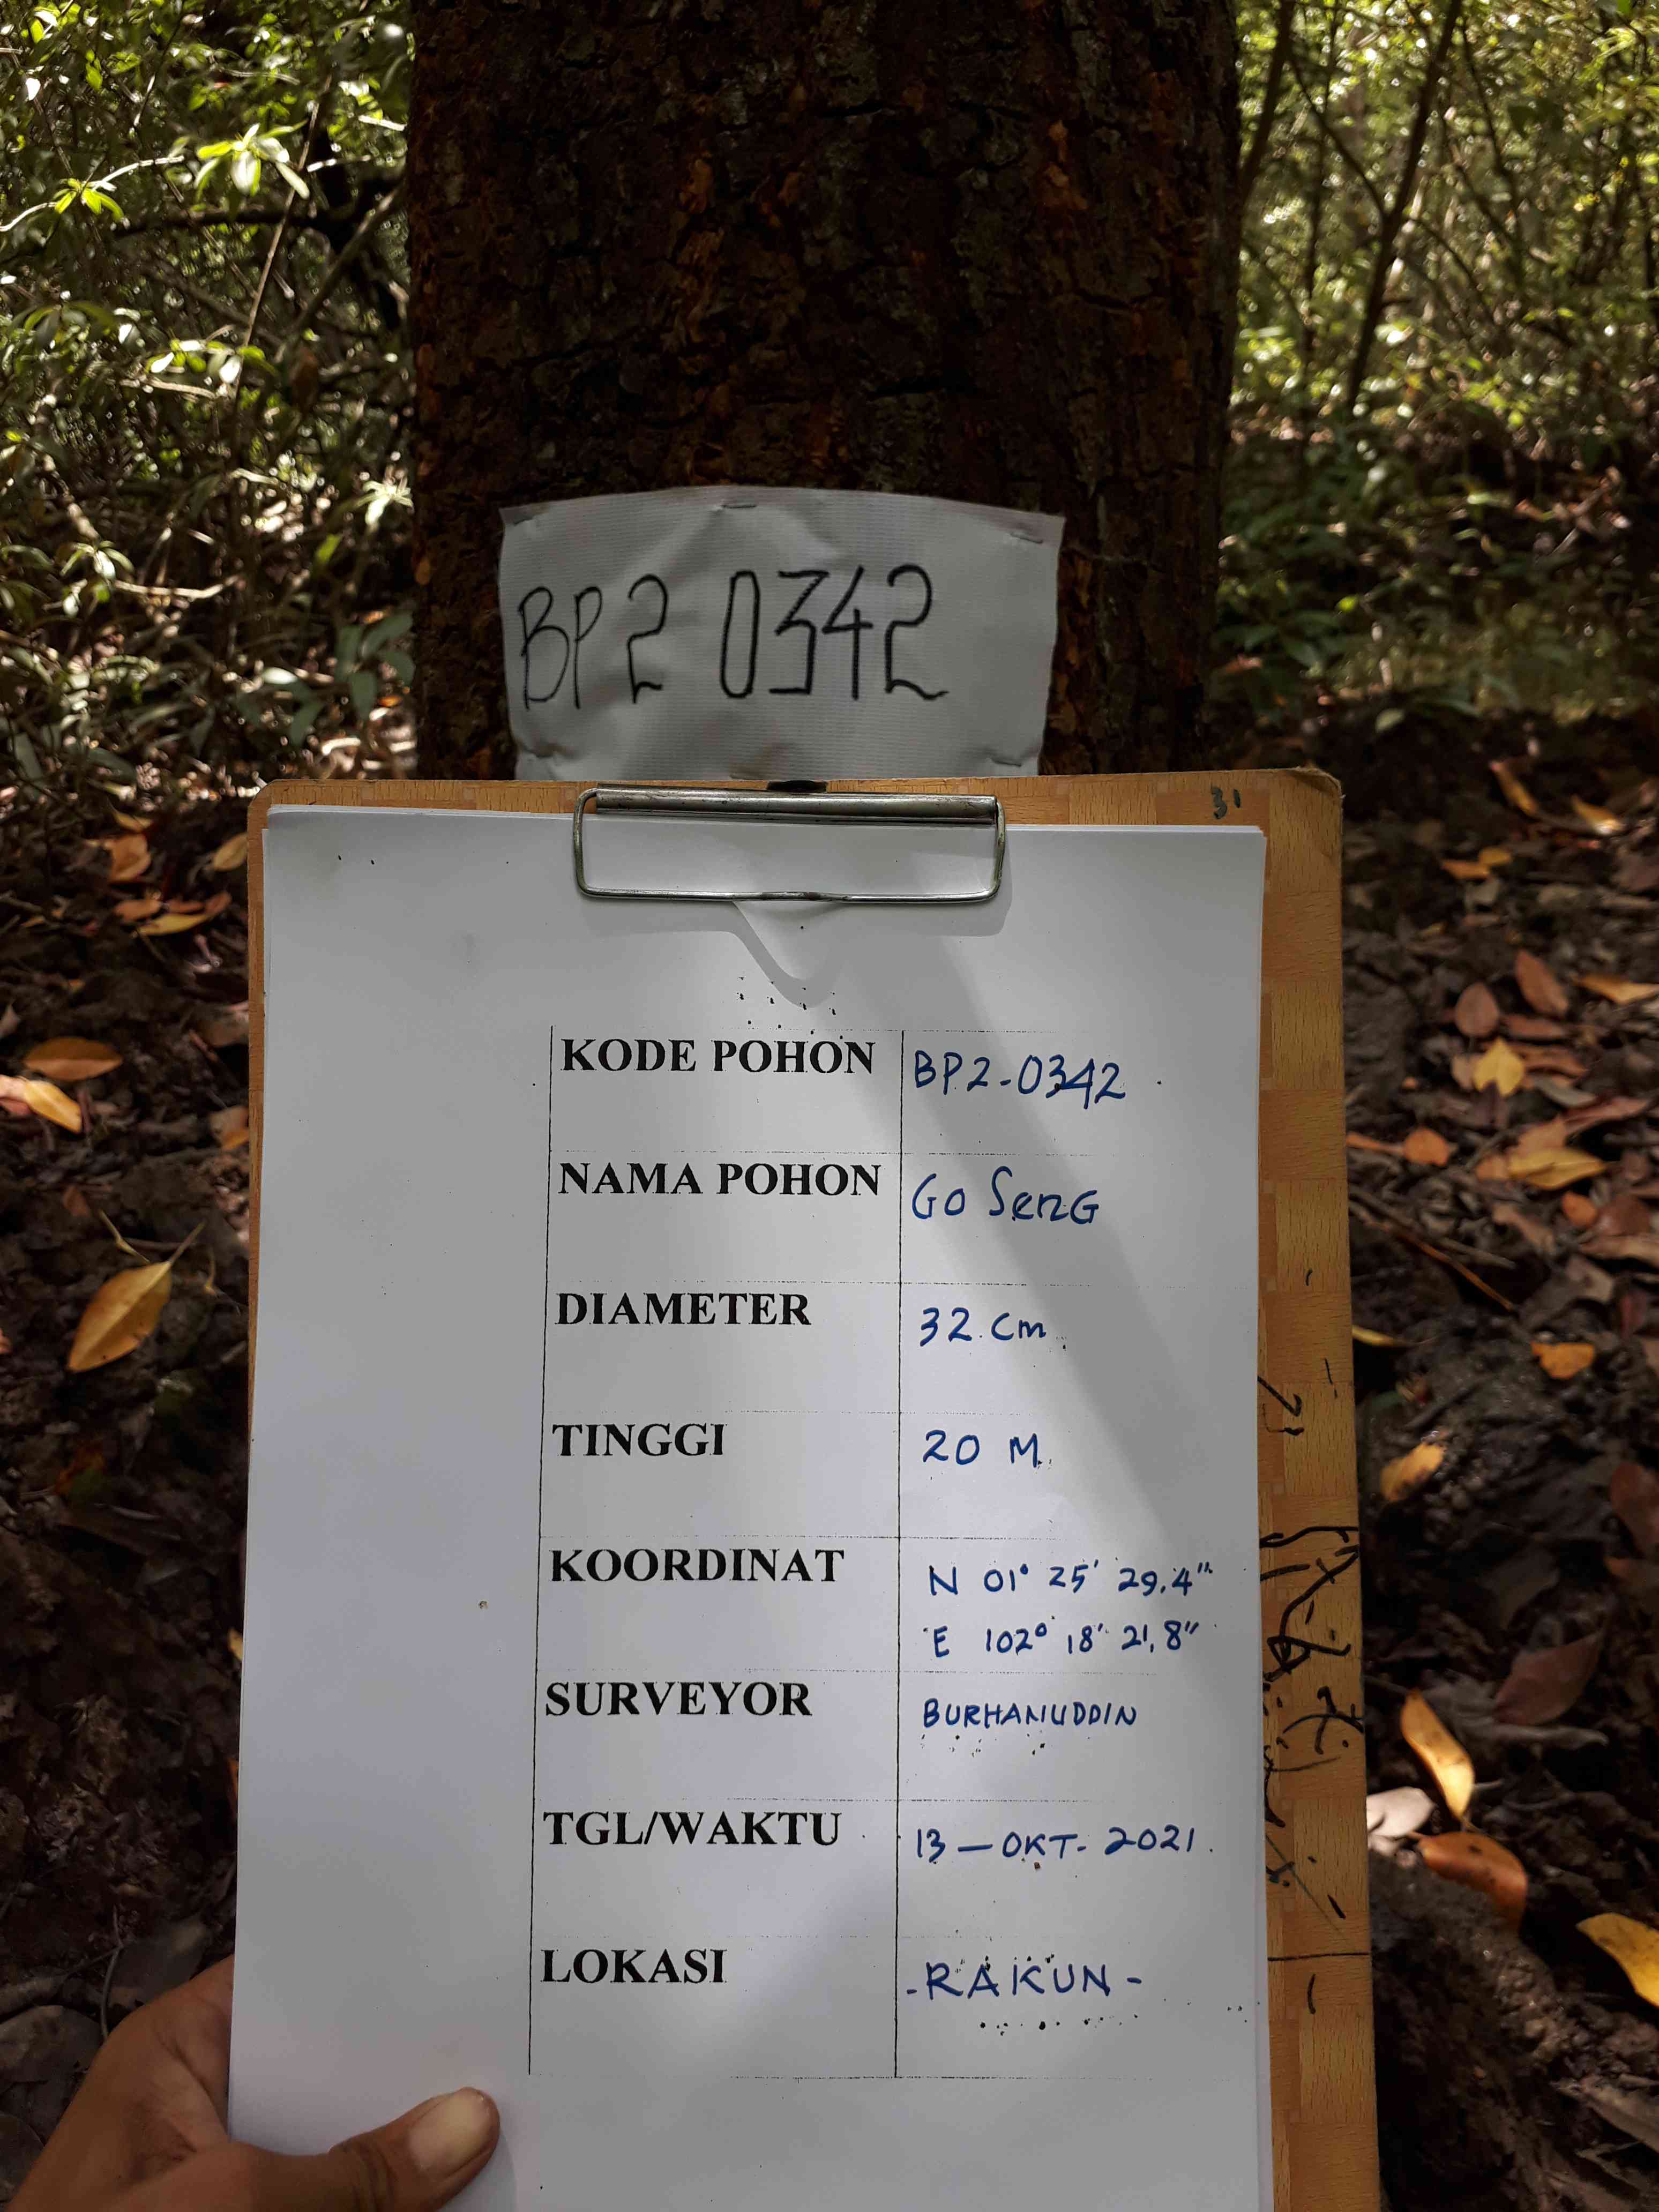 BP2 0342
31
KODE POHON BP2-0342
NAMA POHON GO SENG
DIAMETER 32 Cm
TINGGI 20 M
KOORDINAT N 01° 25' 29.4"
E 102° 18' 21,8"
SURVEYOR BURHANUDDIN
TGL/WAKTU 13 - OKT- 2021
LOKASI - RAKUN -